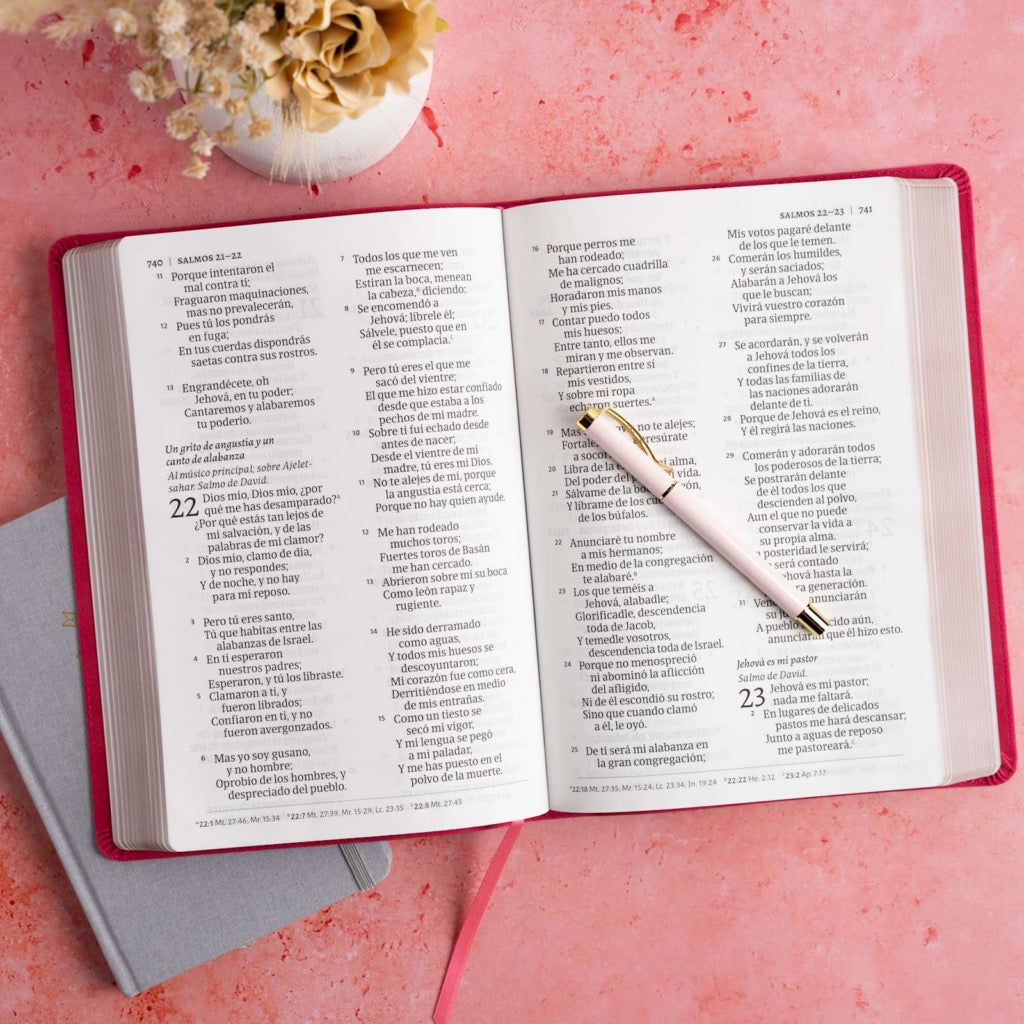 740 | SALMOS 21–22
11 Porque intentaron el
mal contra ti;
Fraguaron maquinaciones,
mas no prevalecerán,
12 Pues tú los pondrás
en fuga;
En tus cuerdas dispondrás
saetas contra sus rostros.
13 Engrandécete, oh
Jehová, en tu poder;
Cantaremos y alabaremos
tu poderío.
Un grito de angustia y un
canto de alabanza
Al músico principal; sobre Ajelet-
sahar. Salmo de David.
22 Dios mío, Dios mío, ¿por
qué me has desamparado?ᴬ
¿Por qué estás tan lejos de
mi salvación, y de las
palabras de mi clamor?
2 Dios mío, clamo de día,
y no respondes;
Y de noche, y no hay
para mí reposo.
3 Pero tú eres santo,
Tú que habitas entre las
alabanzas de Israel.
4 En ti esperaron
nuestros padres;
Esperaron, y tú los libraste.
5 Clamaron a ti, y
fueron librados;
Confiaron en ti, y no
fueron avergonzados.
6 Mas yo soy gusano,
y no hombre;
Oprobio de los hombres, y
despreciado del pueblo.
7 Todos los que me ven
me escarnecen;
Estiran la boca, menean
la cabeza,ᴮ diciendo:
8 Se encomendó a
Jehová; líbrele él;
Sálvele, puesto que en
él se complacía.ᶜ
9 Pero tú eres el que me
sacó del vientre;
El que me hizo estar confiado
desde que estaba a los
pechos de mi madre.
10 Sobre ti fui echado desde
antes de nacer;
Desde el vientre de mi
madre, tú eres mi Dios.
11 No te alejes de mí, porque
la angustia está cerca;
Porque no hay quien ayude.
12 Me han rodeado
muchos toros;
Fuertes toros de Basán
me han cercado.
13 Abrieron sobre mí su boca
Como león rapaz y
rugiente.
14 He sido derramado
como aguas,
Y todos mis huesos se
descoyuntaron;
Mi corazón fue como cera,
Derritiéndose en medio
de mis entrañas.
15 Como un tiesto se
secó mi vigor,
Y mi lengua se pegó
a mi paladar,
Y me has puesto en el
polvo de la muerte.
ᴬ22:1 Mt. 27:46, Mr. 15:34 ᴮ22:7 Mt. 27:39, Mr. 15:29; Lc. 23:35 ᶜ22:8 Mt. 27:43
SALMOS 22–23 | 741
16 Porque perros me
han rodeado;
Me ha cercado cuadrilla
de malignos;
Horadaron mis manos
y mis pies.
17 Contar puedo todos
mis huesos;
Entre tanto, ellos me
miran y me observan.
18 Repartieron entre sí
mis vestidos,
Y sobre mi ropa
echaron suertes.ᴬ
19 Mas no te alejes;
20 Libra de la alma,
Del poder del vida.
21 Sálvame de la león,
Y líbrame de los
de los búfalos.
22 Anunciaré tu nombre
a mis hermanos;
En medio de la congregación
te alabaré.ᴮ
23 Los que teméis a
Jehová, alabadle;
Glorificadle, descendencia
toda de Jacob,
Y temedle vosotros,
descendencia toda de Israel.
24 Porque no menospreció
ni abominó la aflicción
del afligido,
Ni de él escondió su rostro;
Sino que cuando clamó
a él, le oyó.
25 De ti será mi alabanza en
la gran congregación;
Mis votos pagaré delante
de los que le temen.
26 Comerán los humildes,
y serán saciados;
Alabarán a Jehová los
que le buscan;
Vivirá vuestro corazón
para siempre.
27 Se acordarán, y se volverán
a Jehová todos los
confines de la tierra,
Y todas las familias de
las naciones adorarán
delante de ti.
28 Porque de Jehová es el reino,
Y él regirá las naciones.
29 Comerán y adorarán todos
los poderosos de la tierra;
Se postrarán delante
de él todos los que
descienden al polvo,
Aun el que no puede
conservar la vida a
su propia alma.
posteridad le servirá;
será contado
hasta la
generación.
31 anunciarán
su
A pueblo aún,
anunciarán que él hizo esto.
Jehová es mi pastor
Salmo de David.
23 Jehová es mi pastor;
nada me faltará.
2 En lugares de delicados
pastos me hará descansar;
Junto a aguas de reposo
me pastoreará.ᶜ
ᴬ22:18 Mt. 27:35; Mr. 15:24; Lc. 23:34; Jn. 19:24 ᴮ22:22 He. 2:12 ᶜ23:2 Ap. 7:17